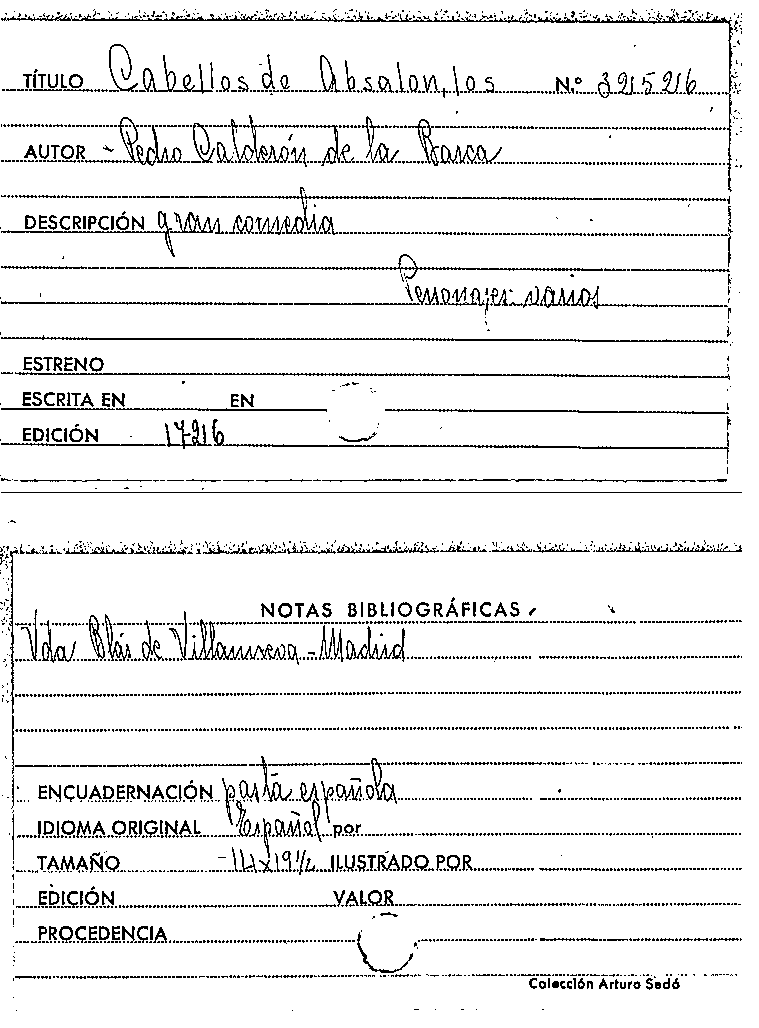 TÍTULO Cabellos de Absalon, los N.º 3215216
AUTOR - Pedro Calderón de la Barca
DESCRIPCIÓN gran comedia
Personajes: varios
ESTRENO
ESCRITA EN EN
EDICIÓN
NOTAS BIBLIOGRÁFICAS
Vda Blás de Villanueva - Madrid
ENCUADERNACIÓN pasta española
IDIOMA ORIGINAL Español por
TAMAÑO - 14x19½ ILUSTRADO POR
EDICIÓN VALOR
PROCEDENCIA
Colección Arturo Sedó